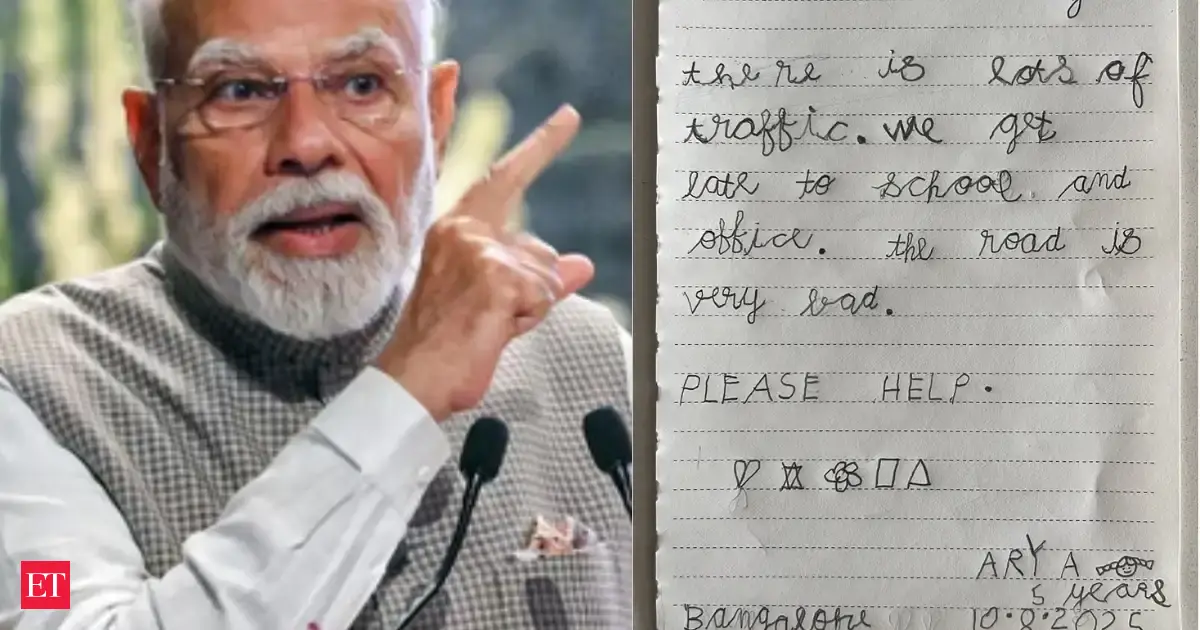 there is lots of
traffic. we get
late to school and
office. the road is
very bad.
PLEASE HELP.
ARYA
5 years
Bangalore 10.8.2025
ET